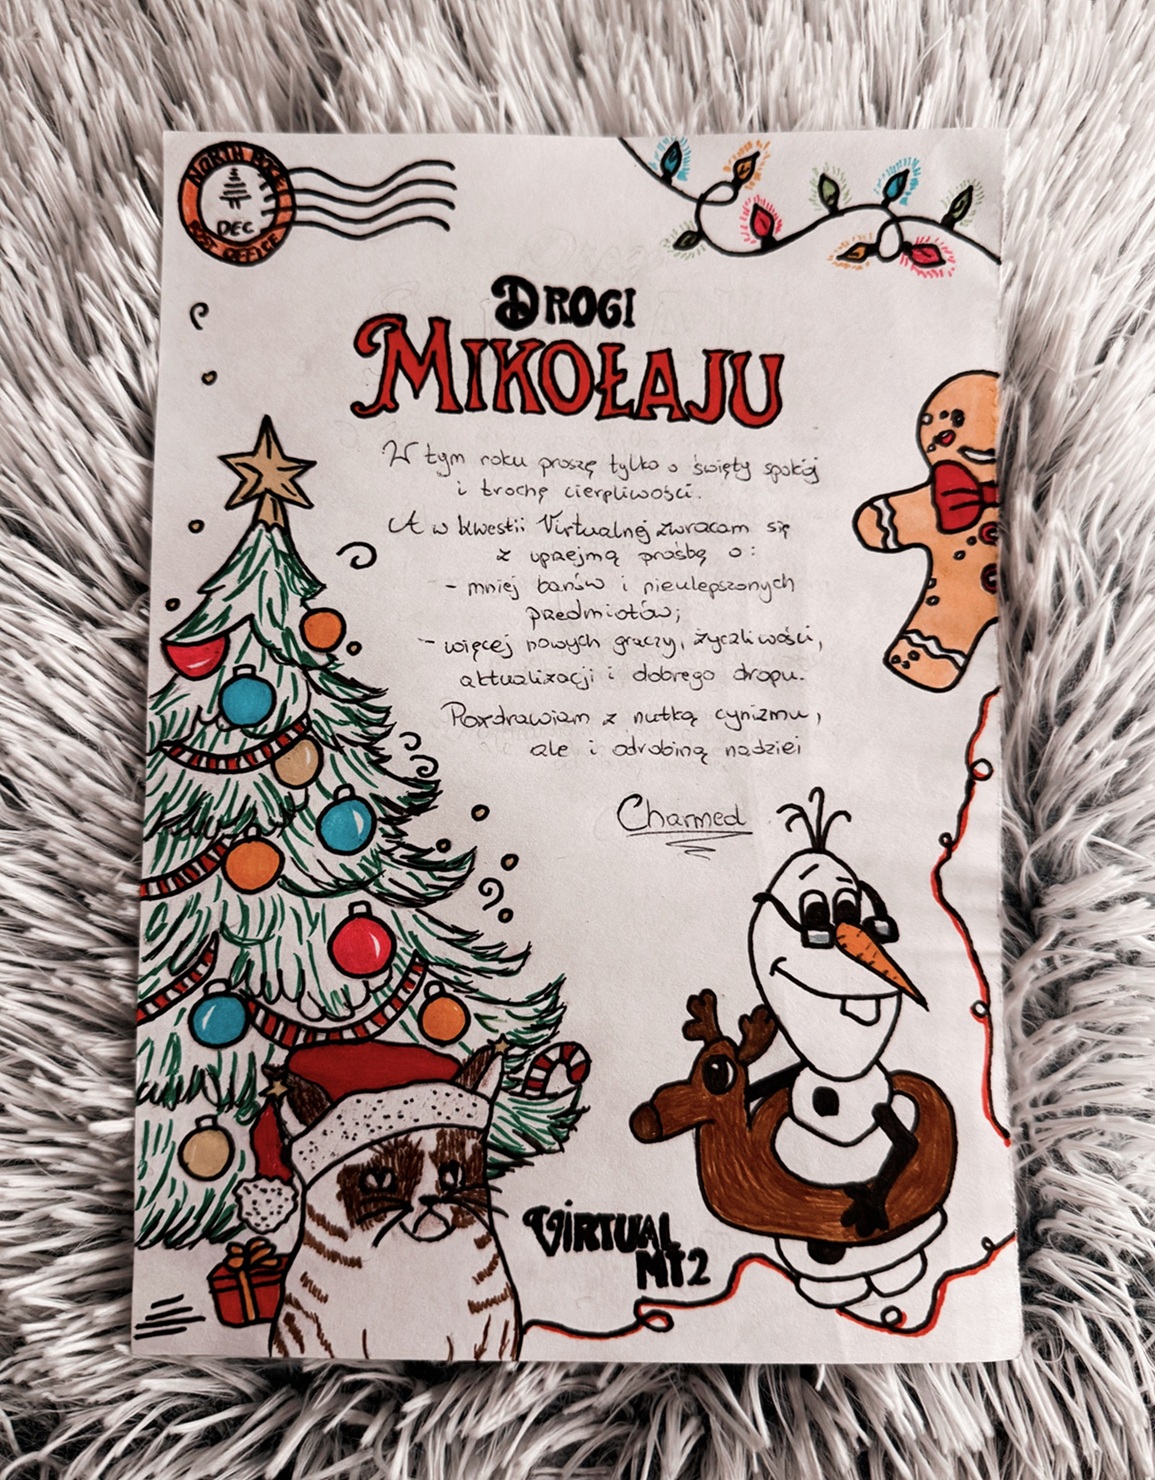 NORTH POLE
DEC
POST OFFICE
DROGI
MIKOŁAJU
W tym roku proszę tylko o święty spokój
i trochę cierpliwości.
A w kwestii Virtualnej zwracam się
z uprzejmą prośbą o:
- mniej banów i nieulepszonych
przedmiotów;
- więcej nowych graczy, życzliwości,
aktualizacji i dobrego dropu.
Pozdrawiam z nutką cynizmu,
ale i odrobiną nadziei
Charmed
VIRTUAL
MT2